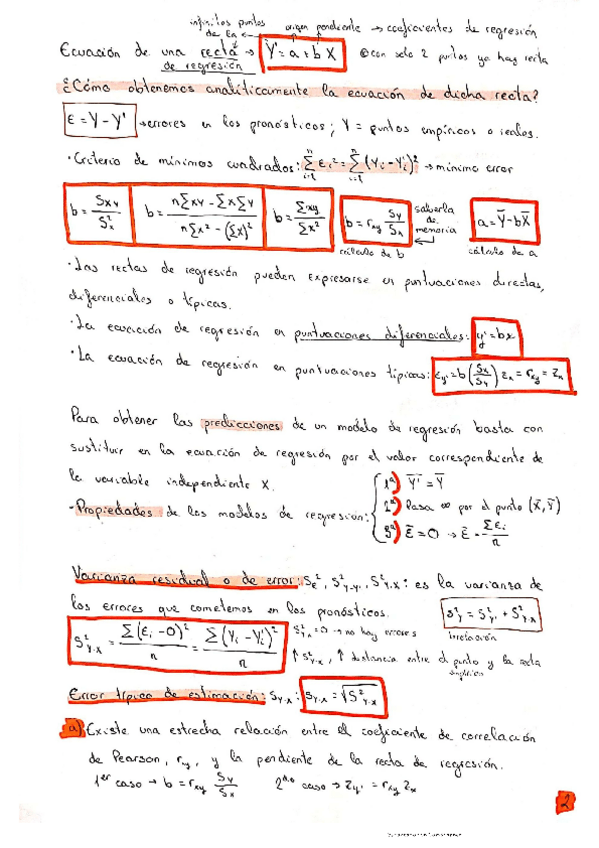 infinitos puntos
de En ← origen pendiente → coeficientes de regresión
Ecuación de una recta → Y' = a + b X con solo 2 puntos ya hay recta
de regresión
¿Cómo obtenemos analíticamente la ecuación de dicha recta?
ε = Y - Y' → errores en los pronósticos; Y = puntos empíricos o reales.
· Criterio de mínimos cuadrados: Σ εᵢ² = Σ (Yᵢ - Yᵢ')² → mínimo error
b = Sxy / S²x b = (nΣxy - ΣxΣy) / (nΣx² - (Σx)²) b = Σxy / Σx² b = rxy Sy/Sx saberla de memoria a = Ȳ - bX̄
cálculo de b cálculo de a
· Las rectas de regresión pueden expresarse en puntuaciones directas,
diferenciales o típicas.
· La ecuación de regresión en puntuaciones diferenciales: y' = bx
· La ecuación de regresión en puntuaciones típicas: zy' = b (Sx/Sy) zx = rxy = zx
Para obtener las predicciones de un modelo de regresión basta con
sustituir en la ecuación de regresión por el valor correspondiente de
la variable independiente X.
1ª) Ȳ' = Ȳ
· Propiedades de los modelos de regresión: 2ª) Pasa ∞ por el punto (X̄, Ȳ)
3ª) ε̄ = 0 → ε̄ = Σεᵢ / n
Varianza residual o de error: S²ε, S²y-y', S²Y·X: es la varianza de
los errores que cometemos en los pronósticos. S²y = S²y' + S²Y·X
S²Y·X = Σ(εᵢ - 0)² / n = Σ(Yᵢ - Yᵢ')² / n S²Y·X = 0 → no hay errores relación
↑ S²Y·X, ↑ distancia entre el punto y la recta
empírico
Error típico de estimación: SY·X: SY·X = √S²Y·X
a) Existe una estrecha relación entre el coeficiente de correlación
de Pearson, rxy, y la pendiente de la recta de regresión.
1er caso → b = rxy Sy/Sx 2do caso → zy' = rxy zx
2